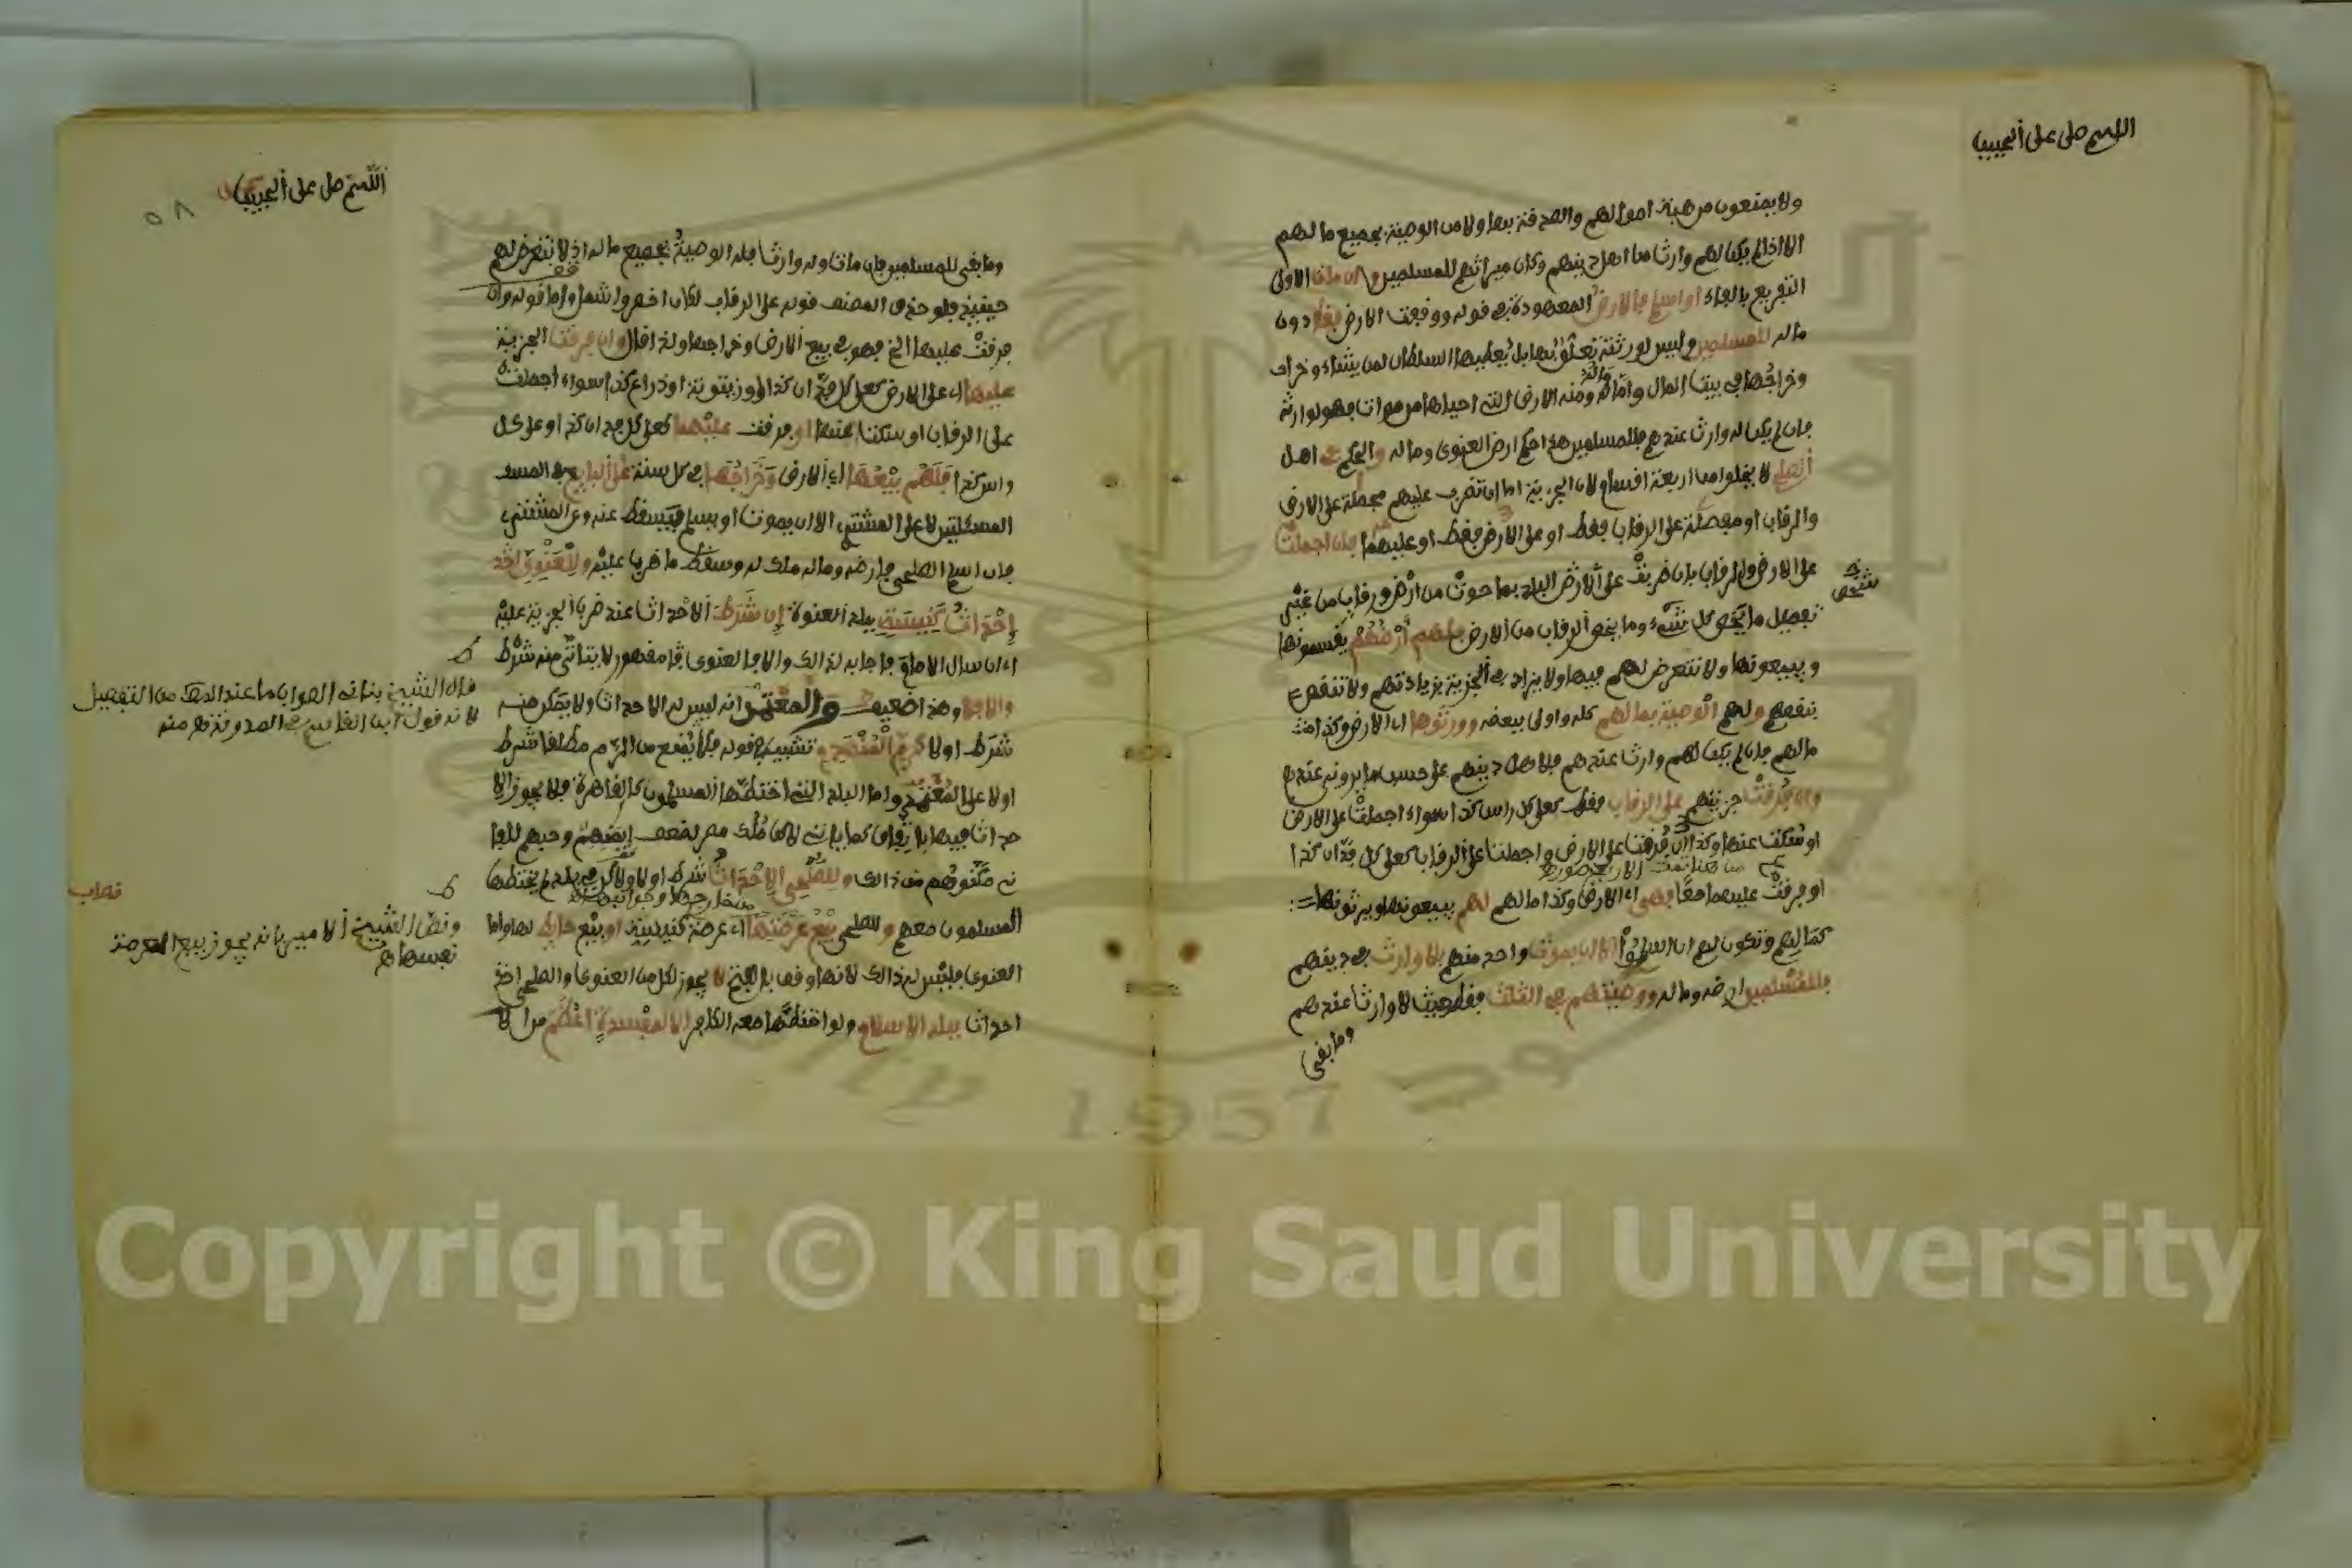 اللهم صلى على الحبيب
ولا يمنعون من هبة اموالهم والصدقة بها ولا من الوصية بجميع مالهم
الا اذا لم يكن لهم وارث من اهل دينهم وكان ميراثهم للمسلمين وان مات الاولى
التفريع بالفاء او اسلم فالارض المعهودة في قوله ووقفت الارض فقط دون
ماله للمسلمين وليس لورثته تعلق بها بل يعطيها السلطان لمن يشاء وخراج
وخراجها في بيت المال واما ماله ومنه الارض التي احياها من موات فهو لوارثه
فان لم يكن له وارث عندهم فللمسلمين هذا حكم ارض العنوى وماله والحكم في اهل
الصلح لا يخلوا من اربعة اقسام لان الجزية اما ان تضرب عليهم مجملة على الارض
والرقاب او مفصلة على الرقاب فقط او على الارض فقط او عليهما فان اجملت
على الارض والرقاب بان ضربت على الارض البلد بما حوت من ارض ورقاب من غير
شخص
تفصيل ما يخص كل شيء وما يخص الرقاب من الارض فلهم ارضهم يقسمونها
ويبيعونها ولا نتعرض لهم فيها ولا يزاد في الجزية بزيادتهم ولا تنقص
بنقصهم ولهم الوصية بمالهم كله واولى ببعضه وورثوها اي الارض وكذا
مالهم فان لم يكن لهم وارث عندهم فلاهل دينهم على حسب ما يرونه عندهم
وان فرقت جزيتهم على الرقاب فقط كعلى كل راس كذا سواء اجملت على الارض
او سكت عنها وكذا ان فرقت على الارض واجملت على الرقاب كعلى كل فدان كذا
من هنا تمت الاربع صور
او فرقت عليهما معا فهي اي الارض وكذا مالهم لهم يبيعونها ويرثونها
كمالهم وتكون لهم ان اسلموا الا ان يموت واحد منهم بلا وارث في دينهم
فللمسلمين ارضه وماله ووصيتهم في الثلث فقط حيث لا وارث عندهم
وما بقي
اللهم صل على الحبيب
٥٨
وما بقي للمسلمين فان مات وله وارث فله الوصية بجميع ماله اذ لا نتعرض لهم
حينئذ فلو حذف المصنف قوله على الرقاب لكان اخصر واشمل واما قوله وان
فرقت عليها الخ فهو في بيع الارض وخراجها ولذا قال وان فرقت الجزية
عليها اي على الارض كعلى كل فدان كذا او زيتونة او ذراع كذا سواء اجملت
على الرقاب او سكت عنها او فرقت عليهما كعلى كل فدان كذا وعلى كل
راس كذا فلهم بيعها اي الارض وخراجها في كل سنة على البايع في
المسئلتين لا على المشتري الا ان يموت او يسلم فيسقط عنه وعن المشتري
فان اسلم الصلحي فارضه وماله ملك له وسقط ما ضرب عليه وللعنوي
احداث كنيسة ببلد العنوة ان شرط الاحداث عند ضرب الجزية عليه
اي ان سال الامام فاجابه لذالك والا فالعنوى مقهور لا يتاتى منه شرط
والا فلا وهذا ضعيف والمعتمد انه ليس له الاحداث ولا يمكن منه
شرط اولا كرم المنهدم تشبيه في قوله فلا يمنع من الرم مطلقا شرط
اولا على المعتمد واما البلد التي اختطها المسلمون كالقاهرة فلا يجوز الا
حداث فيها باتفاق كما ياتي لاكن ملوك مصر لضعف ايمنهم وحبهم للفا
نى مكنوهم من ذالك وللصلحي الاحداث شرط اولا في بلد لم يختطها
المسلمون معهم وللصلحي بيع عرصتها اي عرصة كنيسة او بيع حائط لها واما
العنوى فليس له ذالك لانها وقف بالفتح لا يجوز لكل من العنوى والصلحي
احداث ببلد الاسلام ولو اختطها معه الكافر الا لمفسدة اعظم من الا
قال الشيخ بناني الصواب ما عند المص من التفصيل
لانه قول ابن القاسم في المدونة
ونص الشيخ الامير بانه يجوز بيع العرصة
نفسها
Copyright © King Saud University
1957